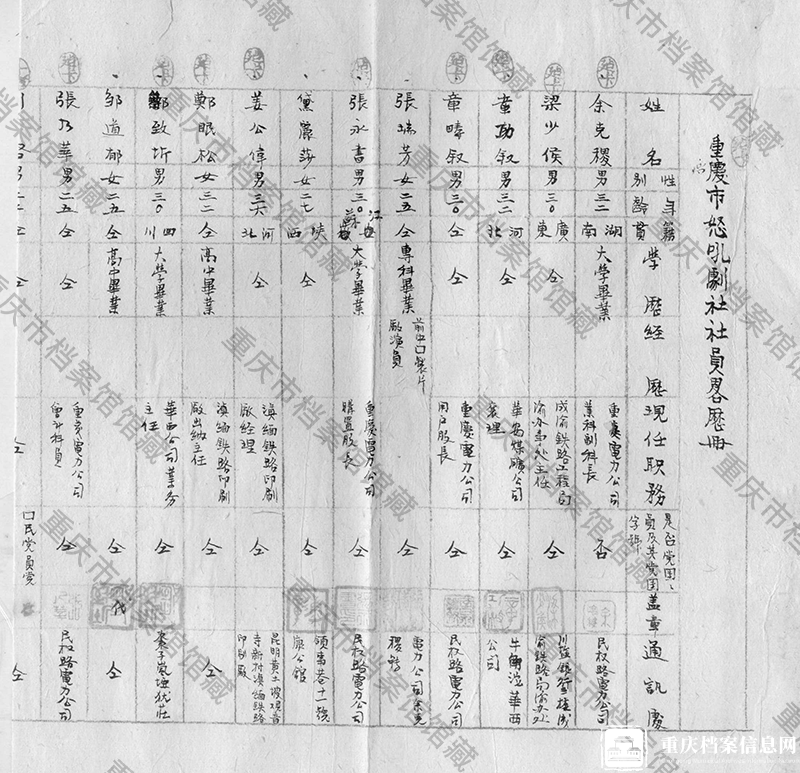 重慶市怒吼劇社社員畧歷冊
姓名 性別 年齡 籍貫 學歷 經歷 現任职務 是否党团員及其党团字號 盖章 通訊處
余克稷 男 三二 湖南 大學畢業 重慶電力公司業科副科長 否 民权路電力公司
梁少侯 男 三〇 廣東 仝 成渝鉄路工程局渝办事处主任 仝
章功叙 男 三二 河北 仝 華安煤礦公司襄理 仝 牛角沱華西公司
章疇叙 男 三〇 仝 仝 重慶電力公司用戶股長 仝 民权路電力公司
張瑞芳 女 二五 仝 專科畢業 前中囗製片廠演員 仝 電力公司余克稷轉
張永書 男 三〇 江蘇 大學畢業 重慶電力公司購置股長 仝 民权路電力公司
黛麗莎 女 二七 陝西 仝 仝 領事巷十一號 康公館
姜公偉 男 三六 河北 仝 滇緬鉄路印刷廠經理 仝 昆明黄土坡观音寺新村滇緬鉄路印刷廠
鄭眠松 女 三二 仝 高中畢業 滇緬鉄路印刷廠出納主任 仝 仝
致圻 男 三〇 四川 大學畢業 華西公司業务主任 仝
鄒道郁 女 二五 仝 高中畢業 仝 代 仝
張乃華 男 二五 仝 仝 重慶電力公司會計科員 仝 民权路電力公司
仝 仝 仝 囗民党員党 仝
重庆市档案馆馆藏
重庆档案信息网